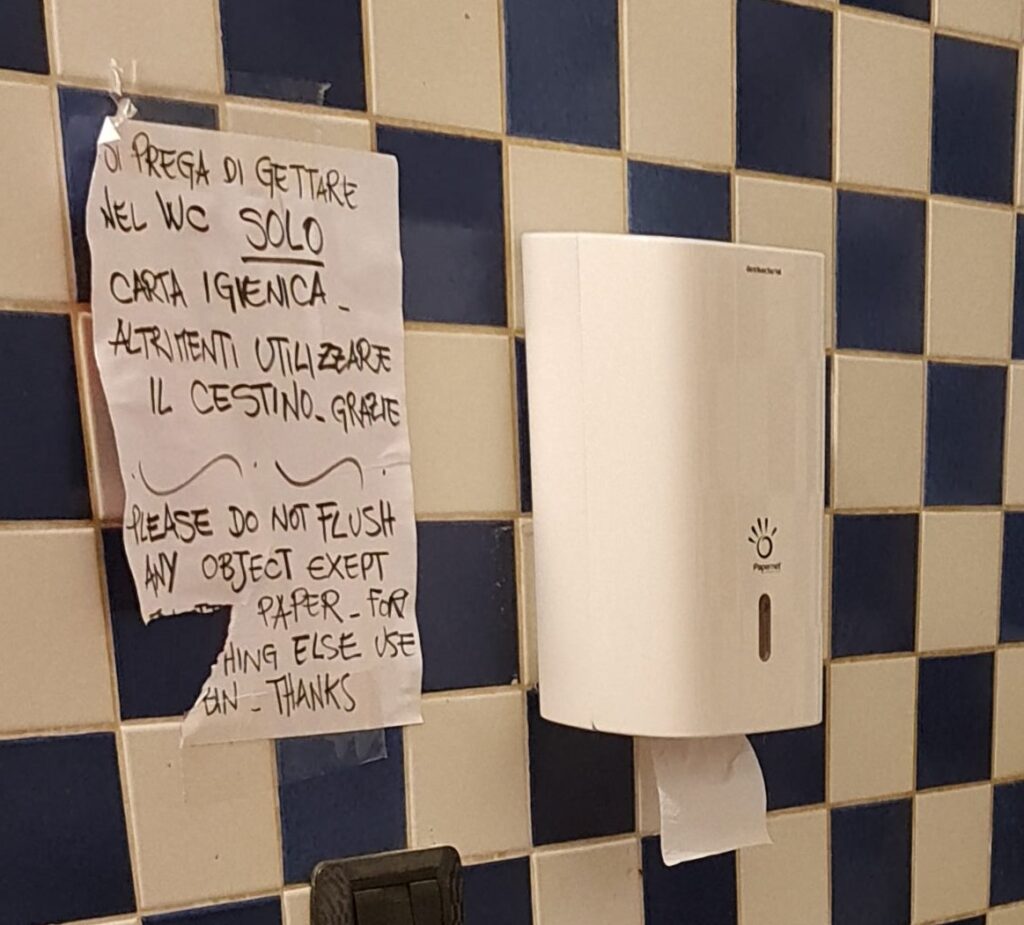 SI PREGA DI GETTARE
NEL WC SOLO
CARTA IGIENICA_
ALTRIMENTI UTILIZZARE
IL CESTINO_GRAZIE
PLEASE DO NOT FLUSH
ANY OBJECT EXEPT
PAPER_FOR
HING ELSE USE
BIN_THANKS
Papernet